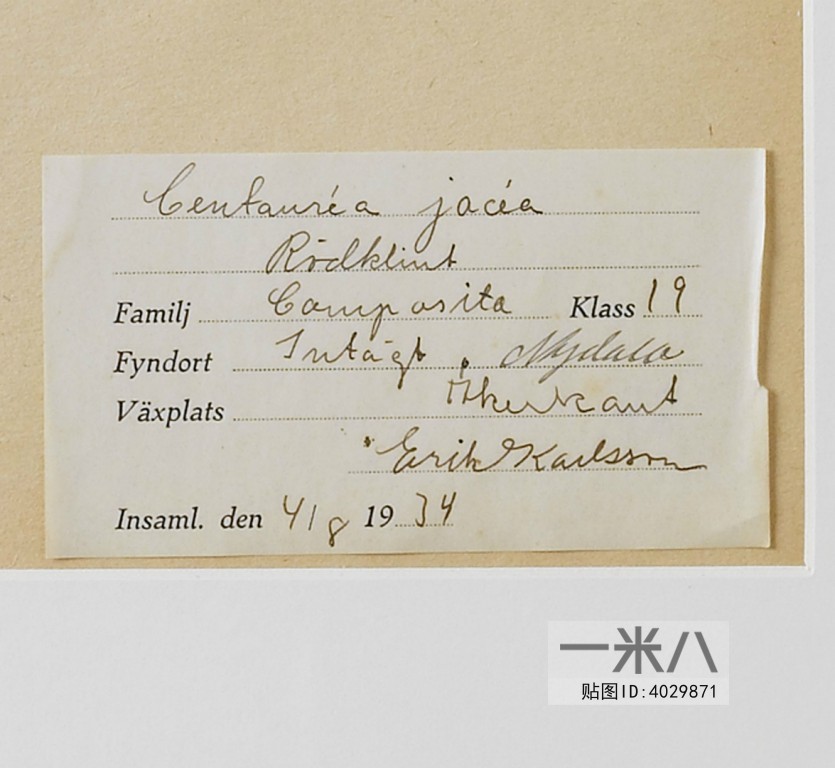 Centauréa jacéa
Rödklint
Familj Composita Klass 19
Fyndort Intågt, Nydala
Växplats Åkerkant
Erik Karlsson
Insaml. den 4/8 1934
一米八
贴图ID:4029871